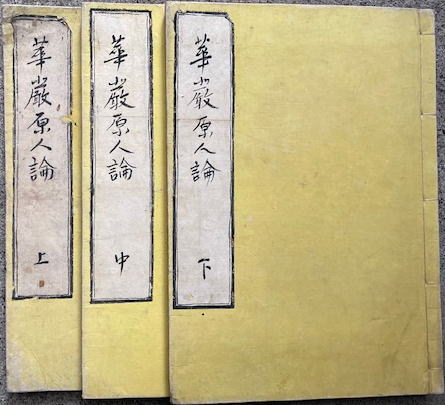 華嚴原人論 上
華嚴原人論 中
華嚴原人論 下